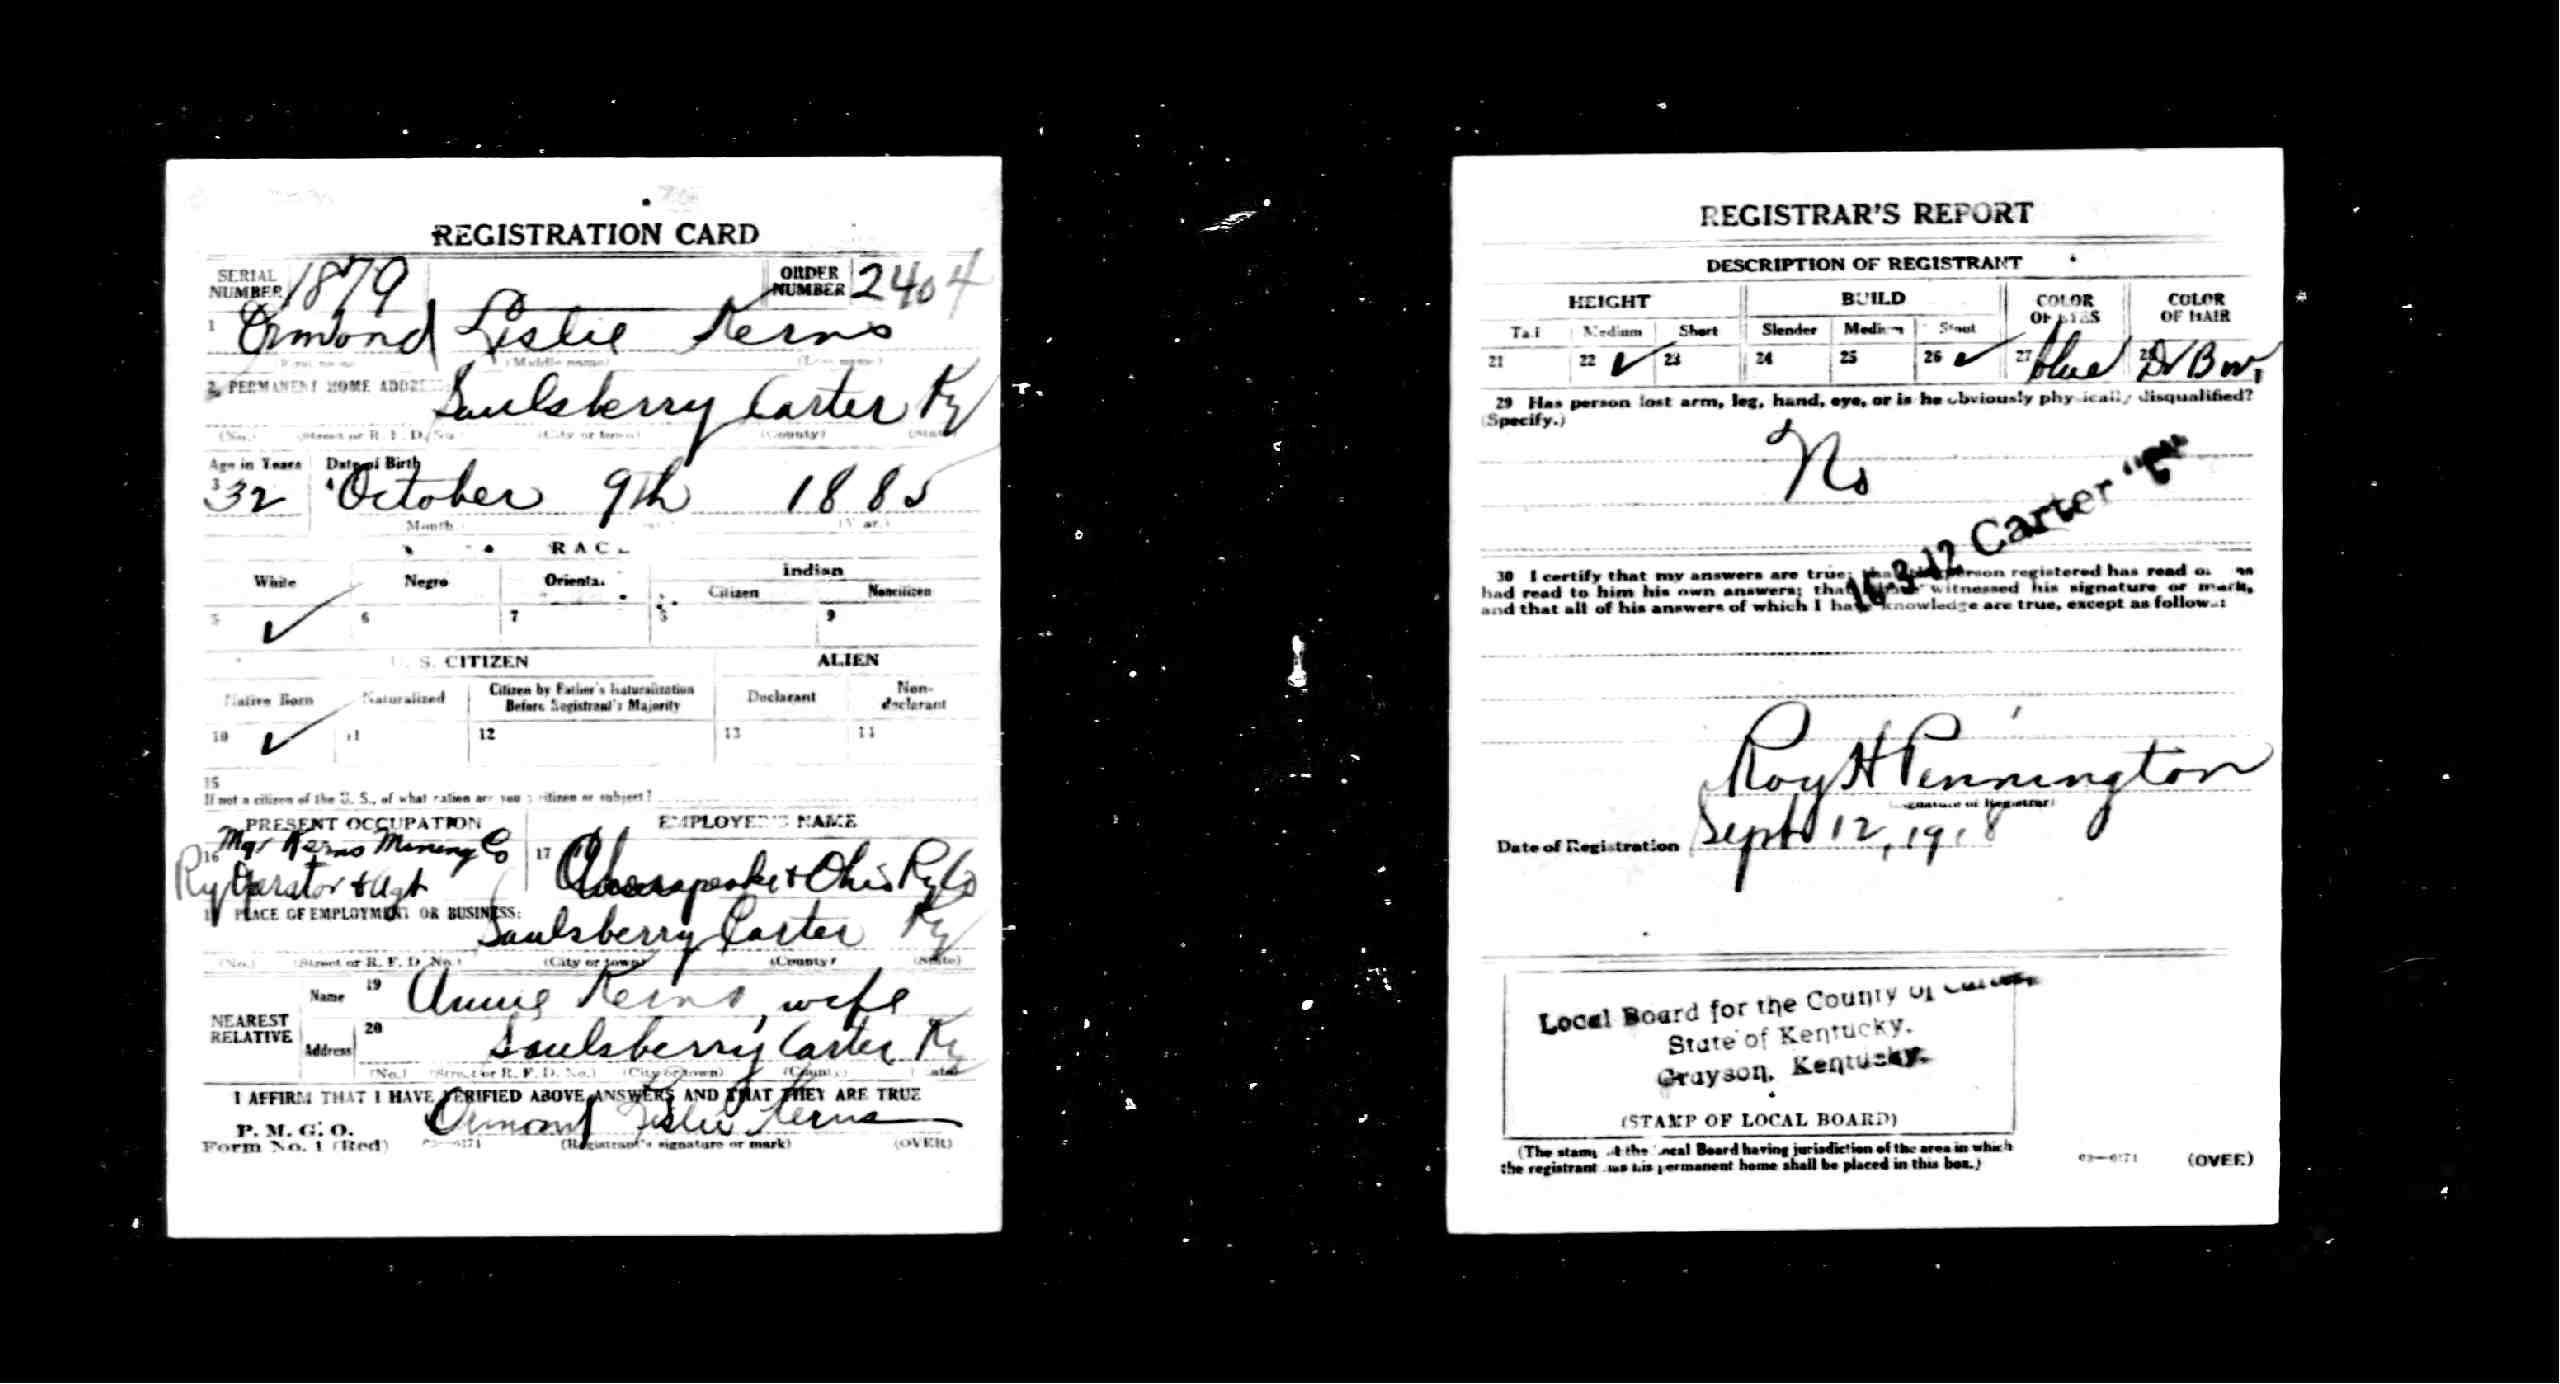 REGISTRATION CARD
SERIAL NUMBER 1879 ORDER NUMBER 2404
1 Ormond Leslie Kerns
(Middle name) (Last name)
2 PERMANENT HOME ADDRESS: Saulsberry Carter Ky
(No.) (Street or R. F. D. No.) (City or town) (County) (State)
Age in Years Date of Birth
3 32 4 October 9th 1885
Month. (Year.)
RACE
White Negro Oriental Indian
Citizen Noncitizen
5 ✓ 6 7 8 9
U. S. CITIZEN ALIEN
Native Born Naturalized Citizen by Father's Naturalization Before Registrant's Majority Declarant Non-declarant
10 ✓ 11 12 13 14
15
If not a citizen of the U. S., of what nation are you a citizen or subject?
PRESENT OCCUPATION EMPLOYER'S NAME
16 Mgr Kerns Mining Co
Ry Oparator & Agt 17 Chesapeake & Ohio Ry Co
18 PLACE OF EMPLOYMENT OR BUSINESS:
Saulsberry Carter Ky
(No.) (Street or R. F. D. No.) (City or town) (County) (State)
NEAREST RELATIVE Name 19 Annie Kerns, wife
Address 20 Saulsberry Carter Ky
(No.) (Street or R. F. D. No.) (City or town) (County) (State)
I AFFIRM THAT I HAVE VERIFIED ABOVE ANSWERS AND THAT THEY ARE TRUE
P. M. G. O.
Form No. 1 (Red) Ormond Leslie Kerns
(Registrant's signature or mark) (OVER)
REGISTRAR'S REPORT
DESCRIPTION OF REGISTRANT
HEIGHT BUILD COLOR OF EYES COLOR OF HAIR
Tall Medium Short Slender Medium Stout
21 22 ✓ 23 24 25 26 ✓ 27 blue 28 Dr Bw.
29 Has person lost arm, leg, hand, eye, or is he obviously physically disqualified?
(Specify.)
No
16-3-12 Carter "C"
30 I certify that my answers are true; that the person registered has read or has
had read to him his own answers; that I have witnessed his signature or mark,
and that all of his answers of which I have knowledge are true, except as follows:
Roy H Pennington
(Signature of Registrar)
Date of Registration Sept 12, 1918
Local Board for the County of Carter,
State of Kentucky.
Grayson, Kentucky.
(STAMP OF LOCAL BOARD)
(The stamp of the Local Board having jurisdiction of the area in which
the registrant has his permanent home shall be placed in this box.)
03-6171 (OVER)